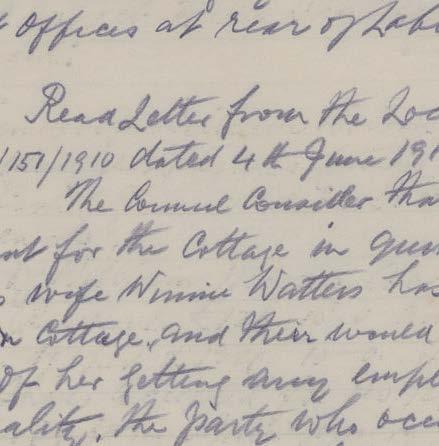 Offices at rear of Lab
Read Letter from the Loc
/151/1910 dated 4th June 191
The Council Consider tha
nt for the Cottage in ques
wife Winnie Watters has
Cottage, and their would
of her getting any empl
ality, the party who occ